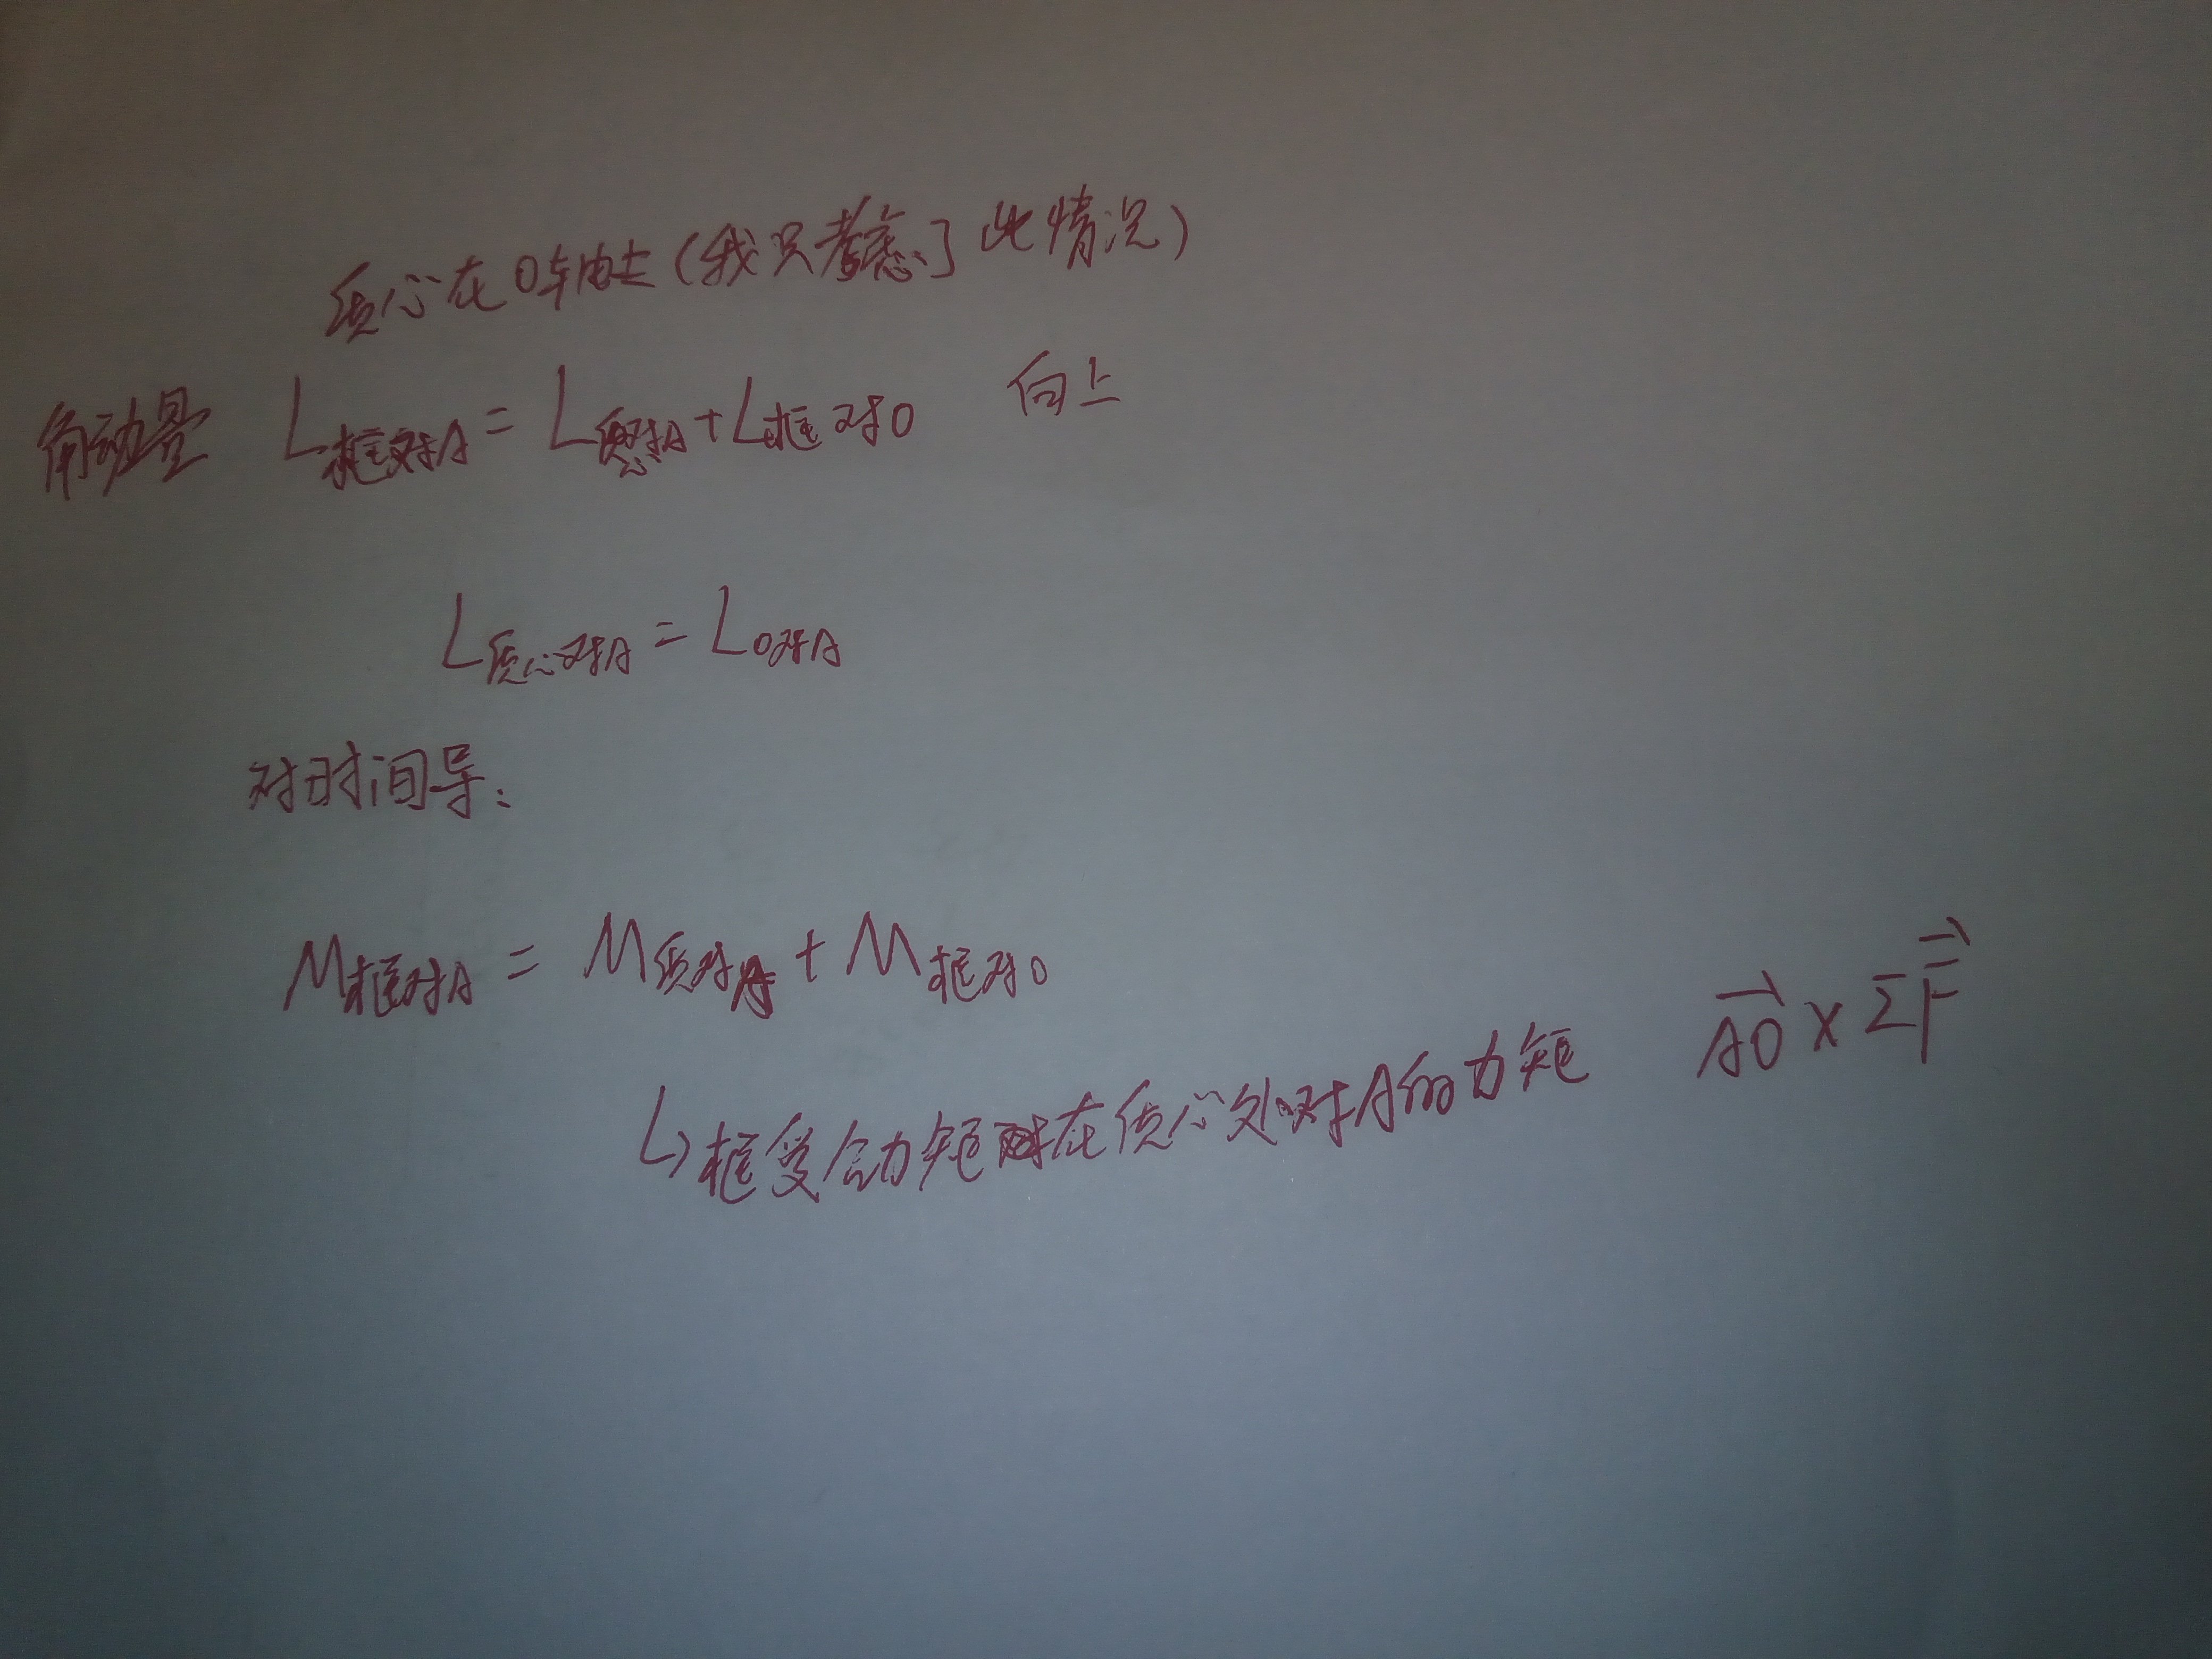 质心在O轴上(我只考虑了此情况)
角动量 L框对A = L质心对A + L框对O 向上
L质心对A = L O对A
对时间导:
M框对A = M质对A + M框对O
↳框受合力矩在质心处对A的力矩 AO × ΣF